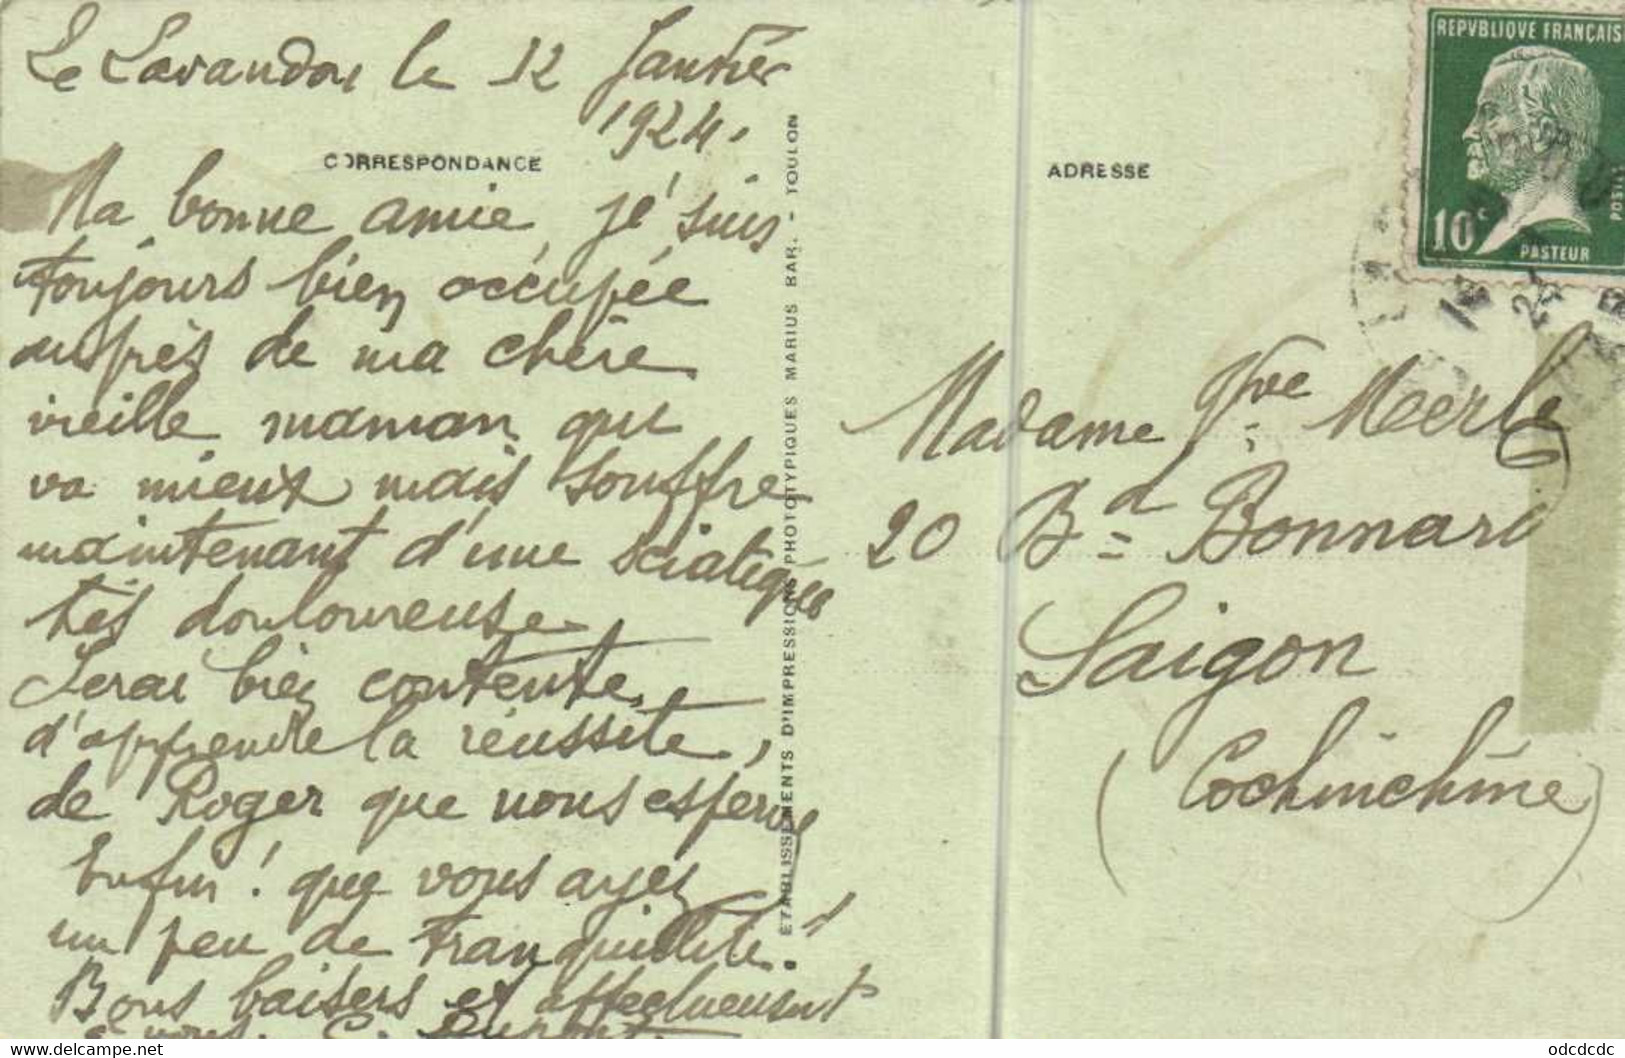 Le Lavandou le 12 Janvier
1924.
CORRESPONDANCE
Ma bonne amie, je suis
toujours bien occupée
auprès de ma chère
vieille maman qui
va mieux mais souffre
maintenant d'une sciatique
très douloureuse.
Serai bien contente
d'apprendre la réussite,
de Roger que nous esperons
Enfin! que vous ayez
un peu de tranquillité!
Bons baisers et affectueusement
à vous. C. Dupont
ETABLISSEMENTS D'IMPRESSIONS PHOTOTYPIQUES MARIUS BAR. - TOULON
ADRESSE
REPVBLIQVE FRANÇAISE
POSTES
10c
PASTEUR
Madame Vve Merle
20 Bd Bonnard
Saigon
(Cochinchine)
odcdcdc